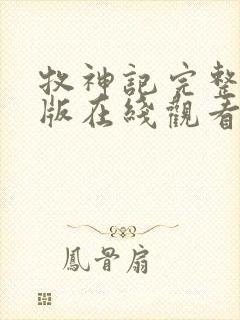 牧神記完整
版在綫觀看
鳳骨扇